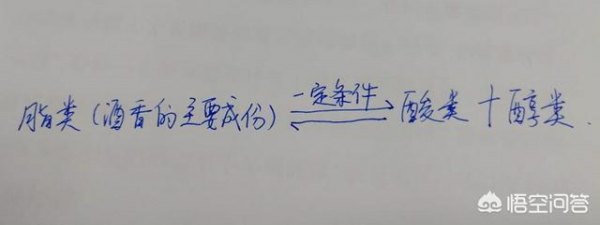 脂类(酒香的主要成份) 一定条件 ⇌ 酸类 + 醇类.
悟空问答